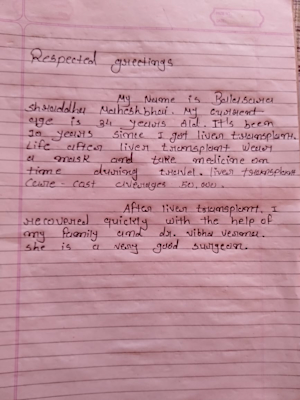 Respected greetings
My Name is Balasara
shraddha Maheshbhai. My current
age is 34 years Old. It's been
10 years since I got liver transplant.
Life after liver transplant wear
a mask and take medicine on
time during travel. liver transplant
Care-cost averages 50,000.
After liver transplant, I
recovered quickly with the help of
my family and dr. vibha verma.
she is a very good surgeon.